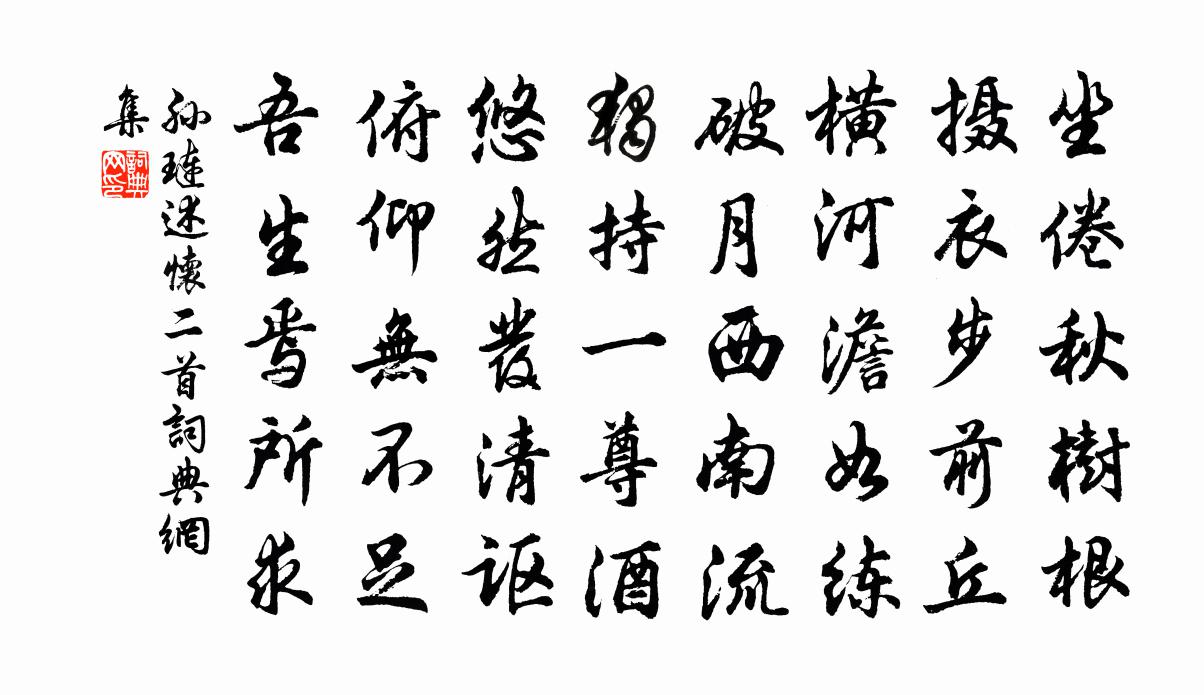 坐倦秋樹根
摄衣步前丘
横河澹如练
破月西南流
獨持一尊酒
悠然發清讴
俯仰無不足
吾生焉所求
孙璉述懷二首詞典網
集
詞典
网印